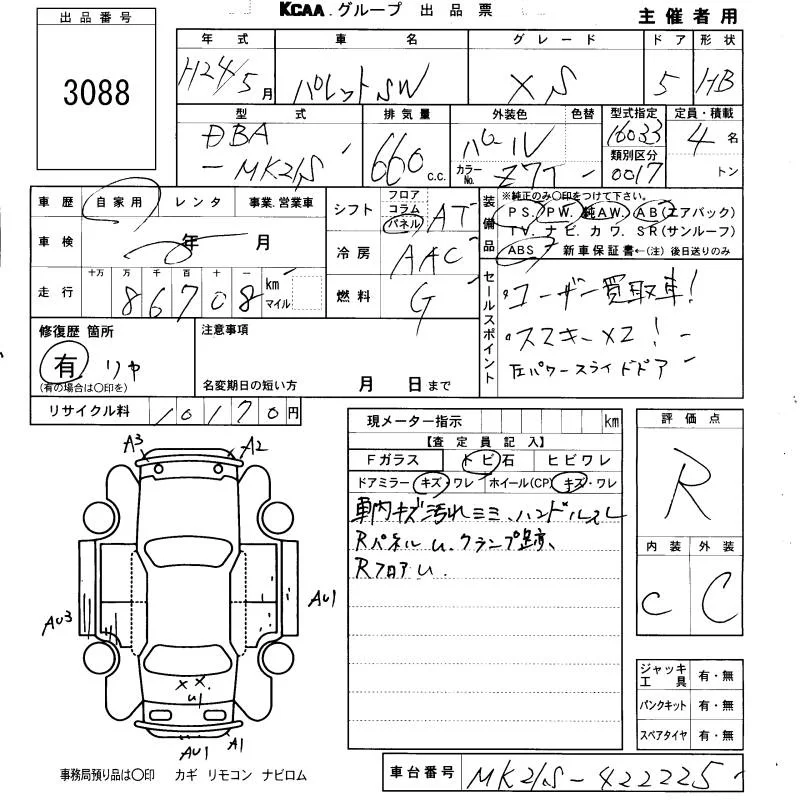 KCAA.グループ 出品票
主催者用
出品番号
3088
年式 車名 グレード ドア 形状
H24/5月 パレットSW XS 5 HB
型式 排気量 外装色 色替 型式指定 定員・積載
DBA
-MK21S 660 c.c. パール 16033 4名
カラーNo. Z7T 類別区分 トン
0017
車歴 自家用 レンタ 事業.営業車
車検 年 月
走行 十万 万 千 百 十 一
86708 km マイル
シフト フロア コラム パネル AT
冷房 AAC
燃料 G
装備品
※純正のみ○印をつけて下さい。
PS. PW. 純AW. AB(エアバック)
TV. ナビ. カワ. SR(サンルーフ)
ABS 新車保証書←(注) 後日送りのみ
セールスポイント
・ユーザー買取車!
・スマキー×2!
左パワースライドドア
修復歴 箇所
有 リヤ
(有の場合は○印を)
注意事項
名変期日の短い方 月 日まで
リサイクル料 10170円
現メーター指示 km
【査定員記入】
Fガラス トビ石 ヒビワレ
ドアミラー キズ・ワレ ホイール(CP) キズ・ワレ
車内キズ汚れミミ.ハンドルスレ
RパネルU.クランプ跡、
RフロアU.
評価点
R
内装 外装
C C
A3 A2
AU3 AU1
××.
U1
AU1 A1
ジャッキ工具 有・無
パンクキット 有・無
スペアタイヤ 有・無
事務局預り品は○印 カギ リモコン ナビロム
車台番号 MK21S-422225